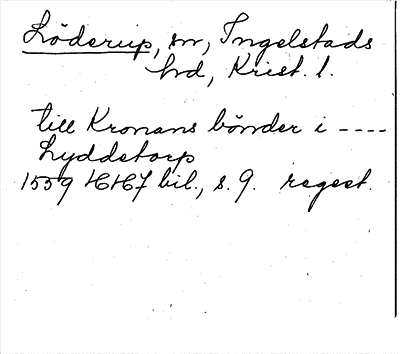 Löderup, sn, Ingelstads
hd, Krist. l.
till Kronans bönder i ----
Lyddetorp
1559 HH7 bil., s. 9. regest.